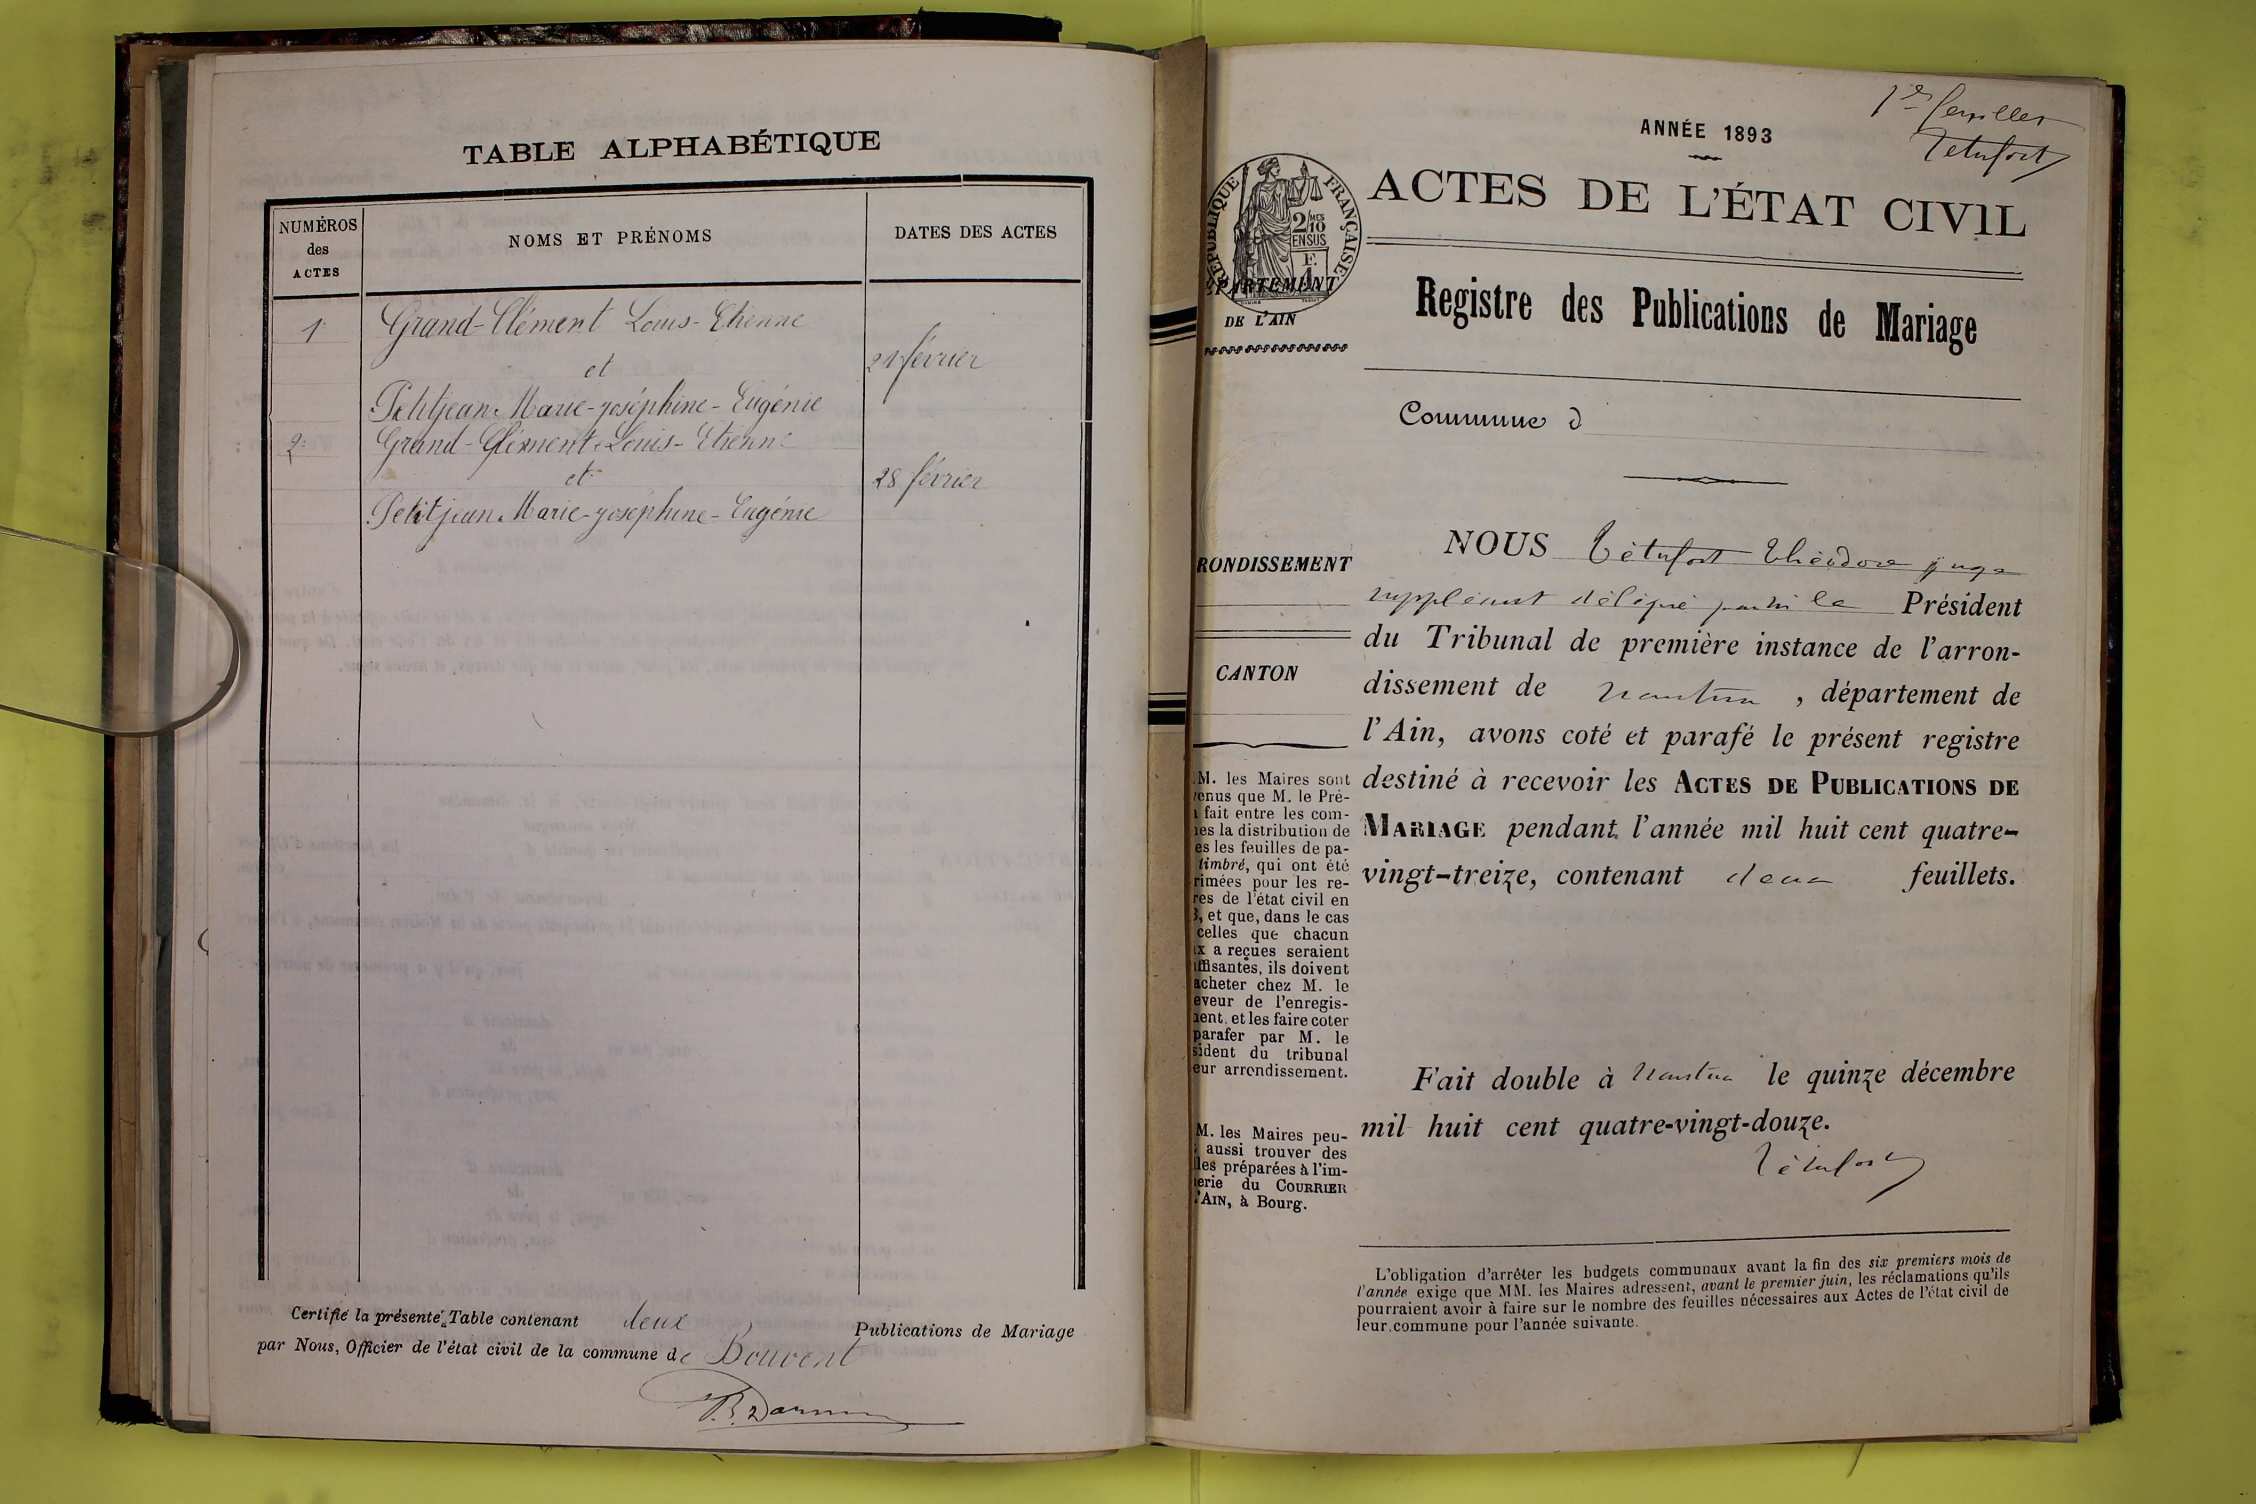 TABLE ALPHABÉTIQUE
NUMÉROS
des
ACTES
NOMS ET PRÉNOMS
DATES DES ACTES
1.
Grand-Clément Louis-Etienne
et
21 février
Petitjean Marie-joséphine-Eugénie
2.
Grand-Clément Louis-Etienne
et
28 février
Petitjean Marie-joséphine-Eugénie
Certifié la présente Table contenant deux Publications de Mariage
par Nous, Officier de l'état civil de la commune de Bouvent
1er feuillet
Tétufort
ANNÉE 1893
RÉPUBLIQUE FRANÇAISE
2/10 MES
EN SUS
F.
1
ACTES DE L'ÉTAT CIVIL
PARTEMENT
DE L'AIN
Registre des Publications de Mariage
Commune d
NOUS Tétufort Théodore juge
suppléant délégué par M. le Président
du Tribunal de première instance de l'arron-
dissement de Nantua, département de
l'Ain, avons coté et parafé le présent registre
destiné à recevoir les ACTES DE PUBLICATIONS DE
MARIAGE pendant l'année mil huit cent quatre-
vingt-treize, contenant deux feuillets.
Fait double à Nantua le quinze décembre
mil huit cent quatre-vingt-douze.
Tétufort
RONDISSEMENT
CANTON
M. les Maires sont
venus que M. le Pré-
fait entre les com-
es la distribution de
es les feuilles de pa-
timbré, qui ont été
rimées pour les re-
res de l'état civil en
3, et que, dans le cas
celles que chacun
x a reçues seraient
ffisantes, ils doivent
acheter chez M. le
eveur de l'enregis-
ent, et les faire coter
parafer par M. le
sident du tribunal
eur arrondissement.
M. les Maires peu-
aussi trouver des
les préparées à l'im-
erie du COURRIER
l'AIN, à Bourg.
L'obligation d'arrêter les budgets communaux avant la fin des six premiers mois de
l'année exige que MM. les Maires adressent, avant le premier juin, les réclamations qu'ils
pourraient avoir à faire sur le nombre des feuilles nécessaires aux Actes de l'état civil de
leur commune pour l'année suivante.